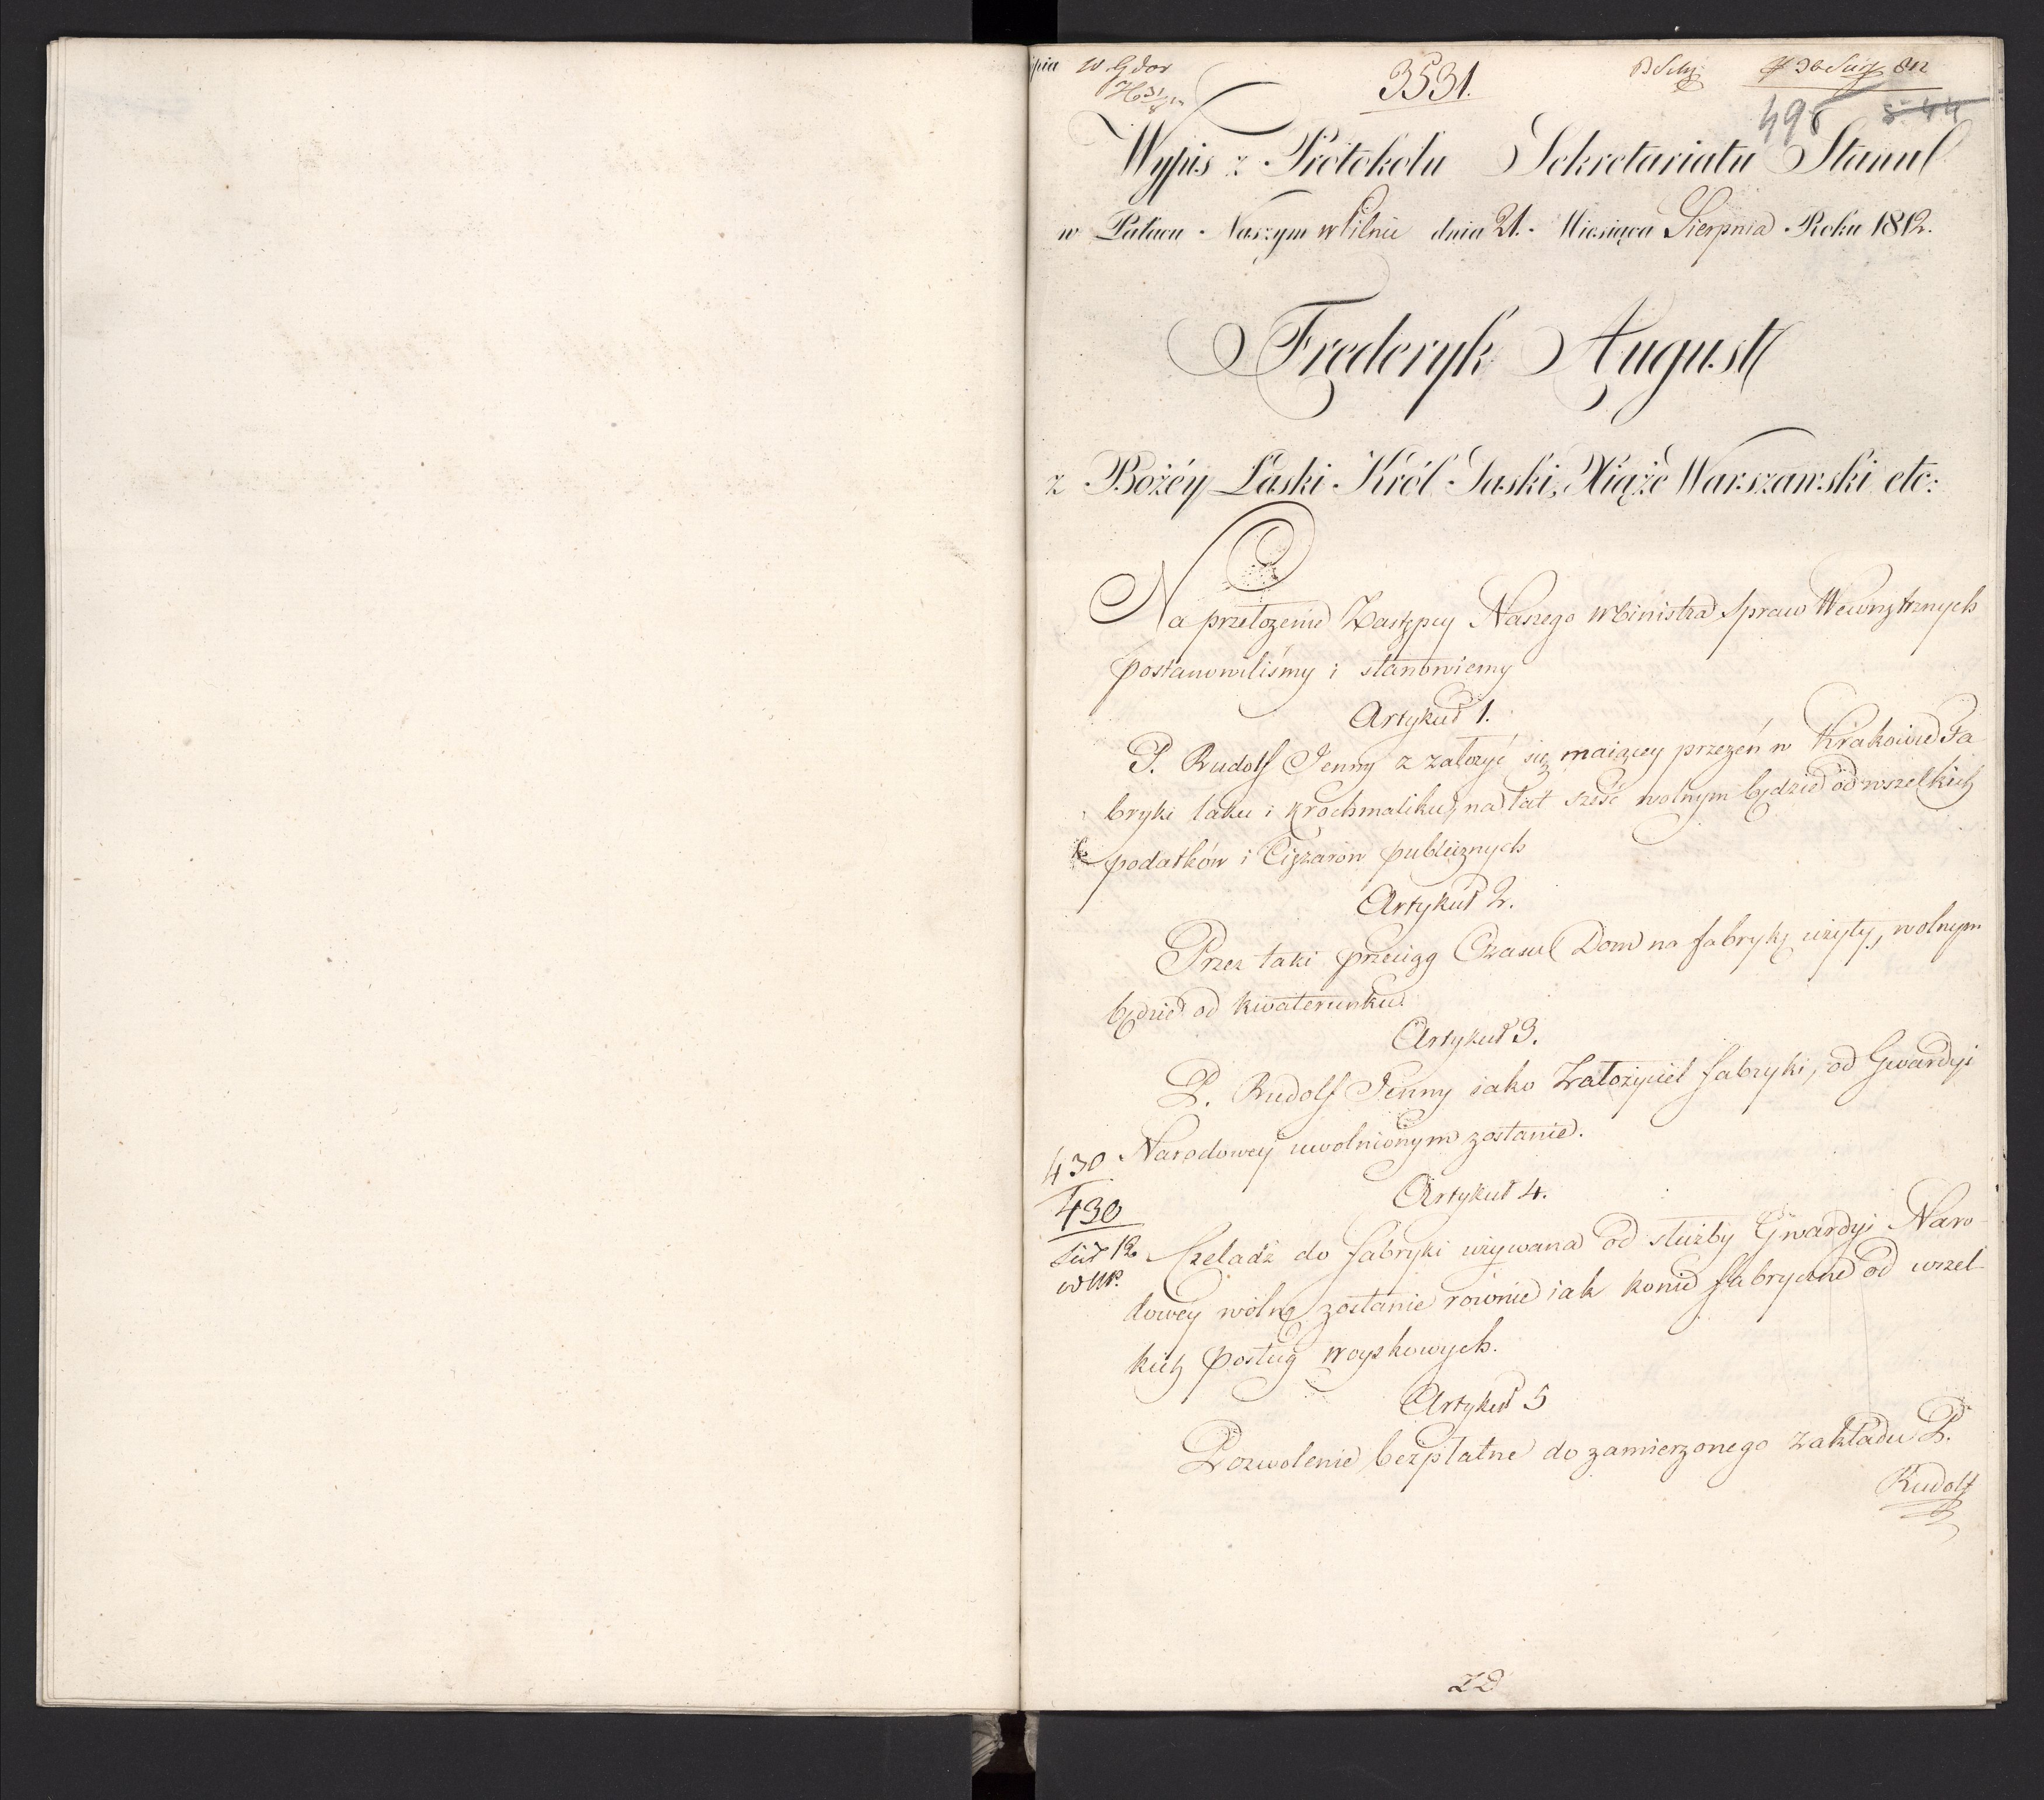 3531.
498
544
Wypis z Protokołu Sekretariatu Stanu
w Pałacu Naszym w Pilnie dnia 21. Miesiąca Sierpnia Roku 1812.
Frederyk August
z Bożéy Łaski Król Saski, Xiąże Warszawski etc:
Na przełożenie Zastępcy Naszego Ministra Spraw Wewnętrznych
postanowiliśmy i stanowiemy
Artykuł 1.
P. Rudolf Jenny z założyć się maiącey przezeń w Krakowie Fa
bryki laku i krochmaliku, na lat sześć wolnym będzie od wszelkich
podatków i Ciężarów publicznych
Artykuł 2.
Przez taki przeciąg Czasu Dom na fabrykę użyty, wolnym
będzie od kwaterunku.
Artykuł 3.
P. Rudolf Jenny iako Założyciel fabryki, od Gwardyi
Narodowey uwolnionym zostanie.
430
430
Artykuł 4.
Czeladź do fabryki używana od służby Gwardyi Naro
dowey wolną zostanie równie iak konie fabryczne od wszel
kich posług woyskowych.
Artykuł 5
Pozwolenie bezpłatne do zamierzonego zakładu P.
Rudolf